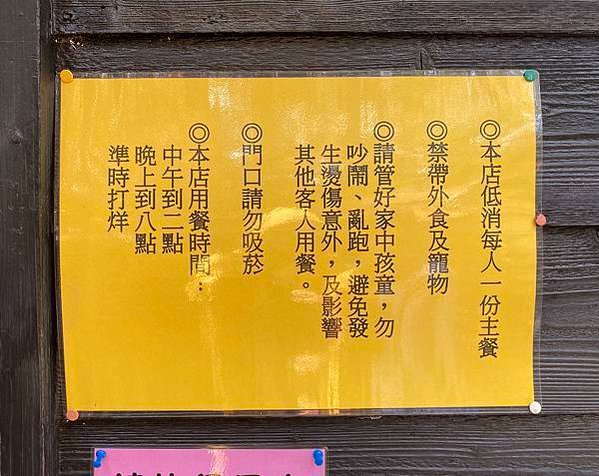 ◎本店低消每人一份主餐
◎禁帶外食及寵物
◎請管好家中孩童，勿
吵鬧、亂跑，避免發
生燙傷意外，及影響
其他客人用餐。
◎門口請勿吸菸
◎本店用餐時間：
中午到二點
晚上到八點
準時打烊